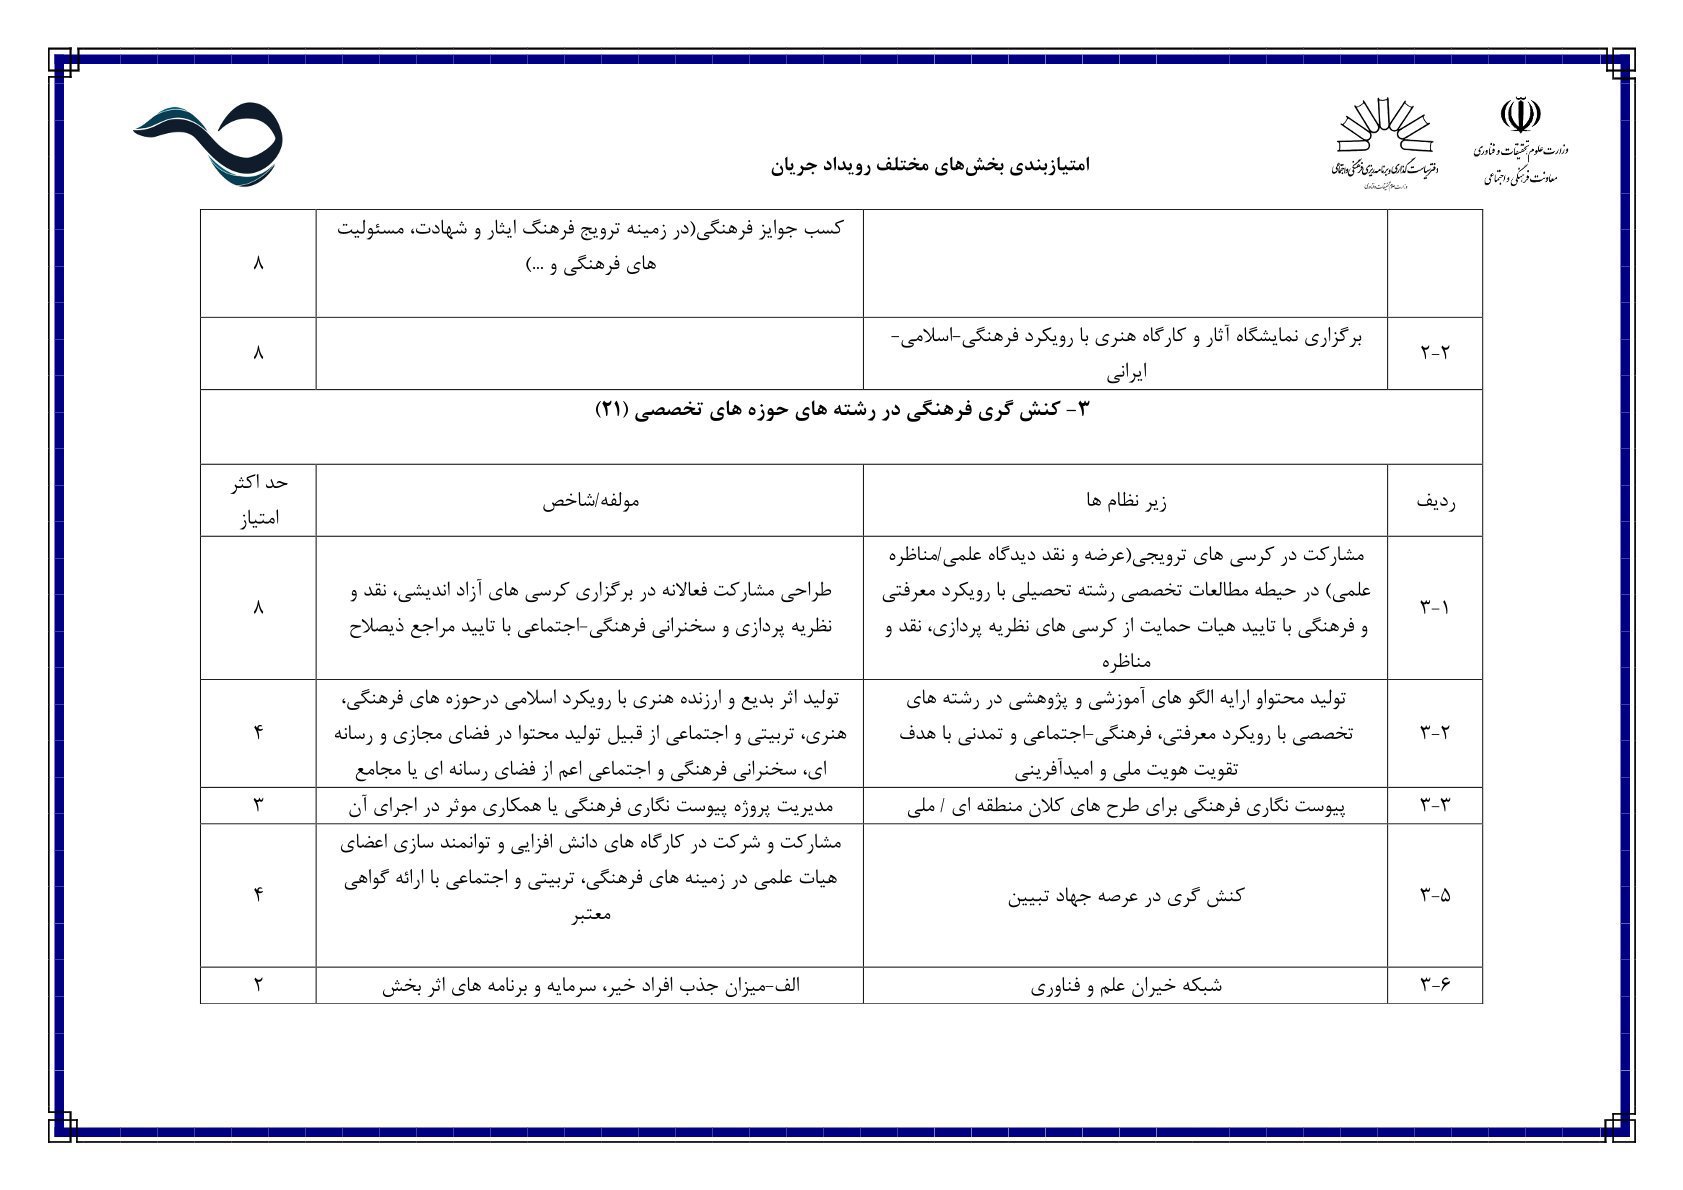 وزارت علوم تحقیقات و فناوری
معاونت فرهنگی و اجتماعی
دفتر سیاست گذاری و برنامه ریزی فرهنگی و اجتماعی
وزارت علوم تحقیقات و فناوری
امتیازبندی بخش‌های مختلف رویداد جریان
کسب جوایز فرهنگی(در زمینه ترویج فرهنگ ایثار و شهادت، مسئولیت
های فرهنگی و ...)
۸
۲-۲
برگزاری نمایشگاه آثار و کارگاه هنری با رویکرد فرهنگی-اسلامی-
ایرانی
۸
۳- کنش گری فرهنگی در رشته های حوزه های تخصصی (۲۱)
ردیف
زیر نظام ها
مولفه/شاخص
حد اکثر
امتیاز
۳-۱
مشارکت در کرسی های ترویجی(عرضه و نقد دیدگاه علمی/مناظره
علمی) در حیطه مطالعات تخصصی رشته تحصیلی با رویکرد معرفتی
و فرهنگی با تایید هیات حمایت از کرسی های نظریه پردازی، نقد و
مناظره
طراحی مشارکت فعالانه در برگزاری کرسی های آزاد اندیشی، نقد و
نظریه پردازی و سخنرانی فرهنگی-اجتماعی با تایید مراجع ذیصلاح
۸
۳-۲
تولید محتواو ارایه الگو های آموزشی و پژوهشی در رشته های
تخصصی با رویکرد معرفتی، فرهنگی-اجتماعی و تمدنی با هدف
تقویت هویت ملی و امیدآفرینی
تولید اثر بدیع و ارزنده هنری با رویکرد اسلامی درحوزه های فرهنگی،
هنری، تربیتی و اجتماعی از قبیل تولید محتوا در فضای مجازی و رسانه
ای، سخنرانی فرهنگی و اجتماعی اعم از فضای رسانه ای یا مجامع
۴
۳-۳
پیوست نگاری فرهنگی برای طرح های کلان منطقه ای / ملی
مدیریت پروژه پیوست نگاری فرهنگی یا همکاری موثر در اجرای آن
۳
۳-۵
کنش گری در عرصه جهاد تبیین
مشارکت و شرکت در کارگاه های دانش افزایی و توانمند سازی اعضای
هیات علمی در زمینه های فرهنگی، تربیتی و اجتماعی با ارائه گواهی
معتبر
۴
۳-۶
شبکه خیران علم و فناوری
الف-میزان جذب افراد خیر، سرمایه و برنامه های اثر بخش
۲